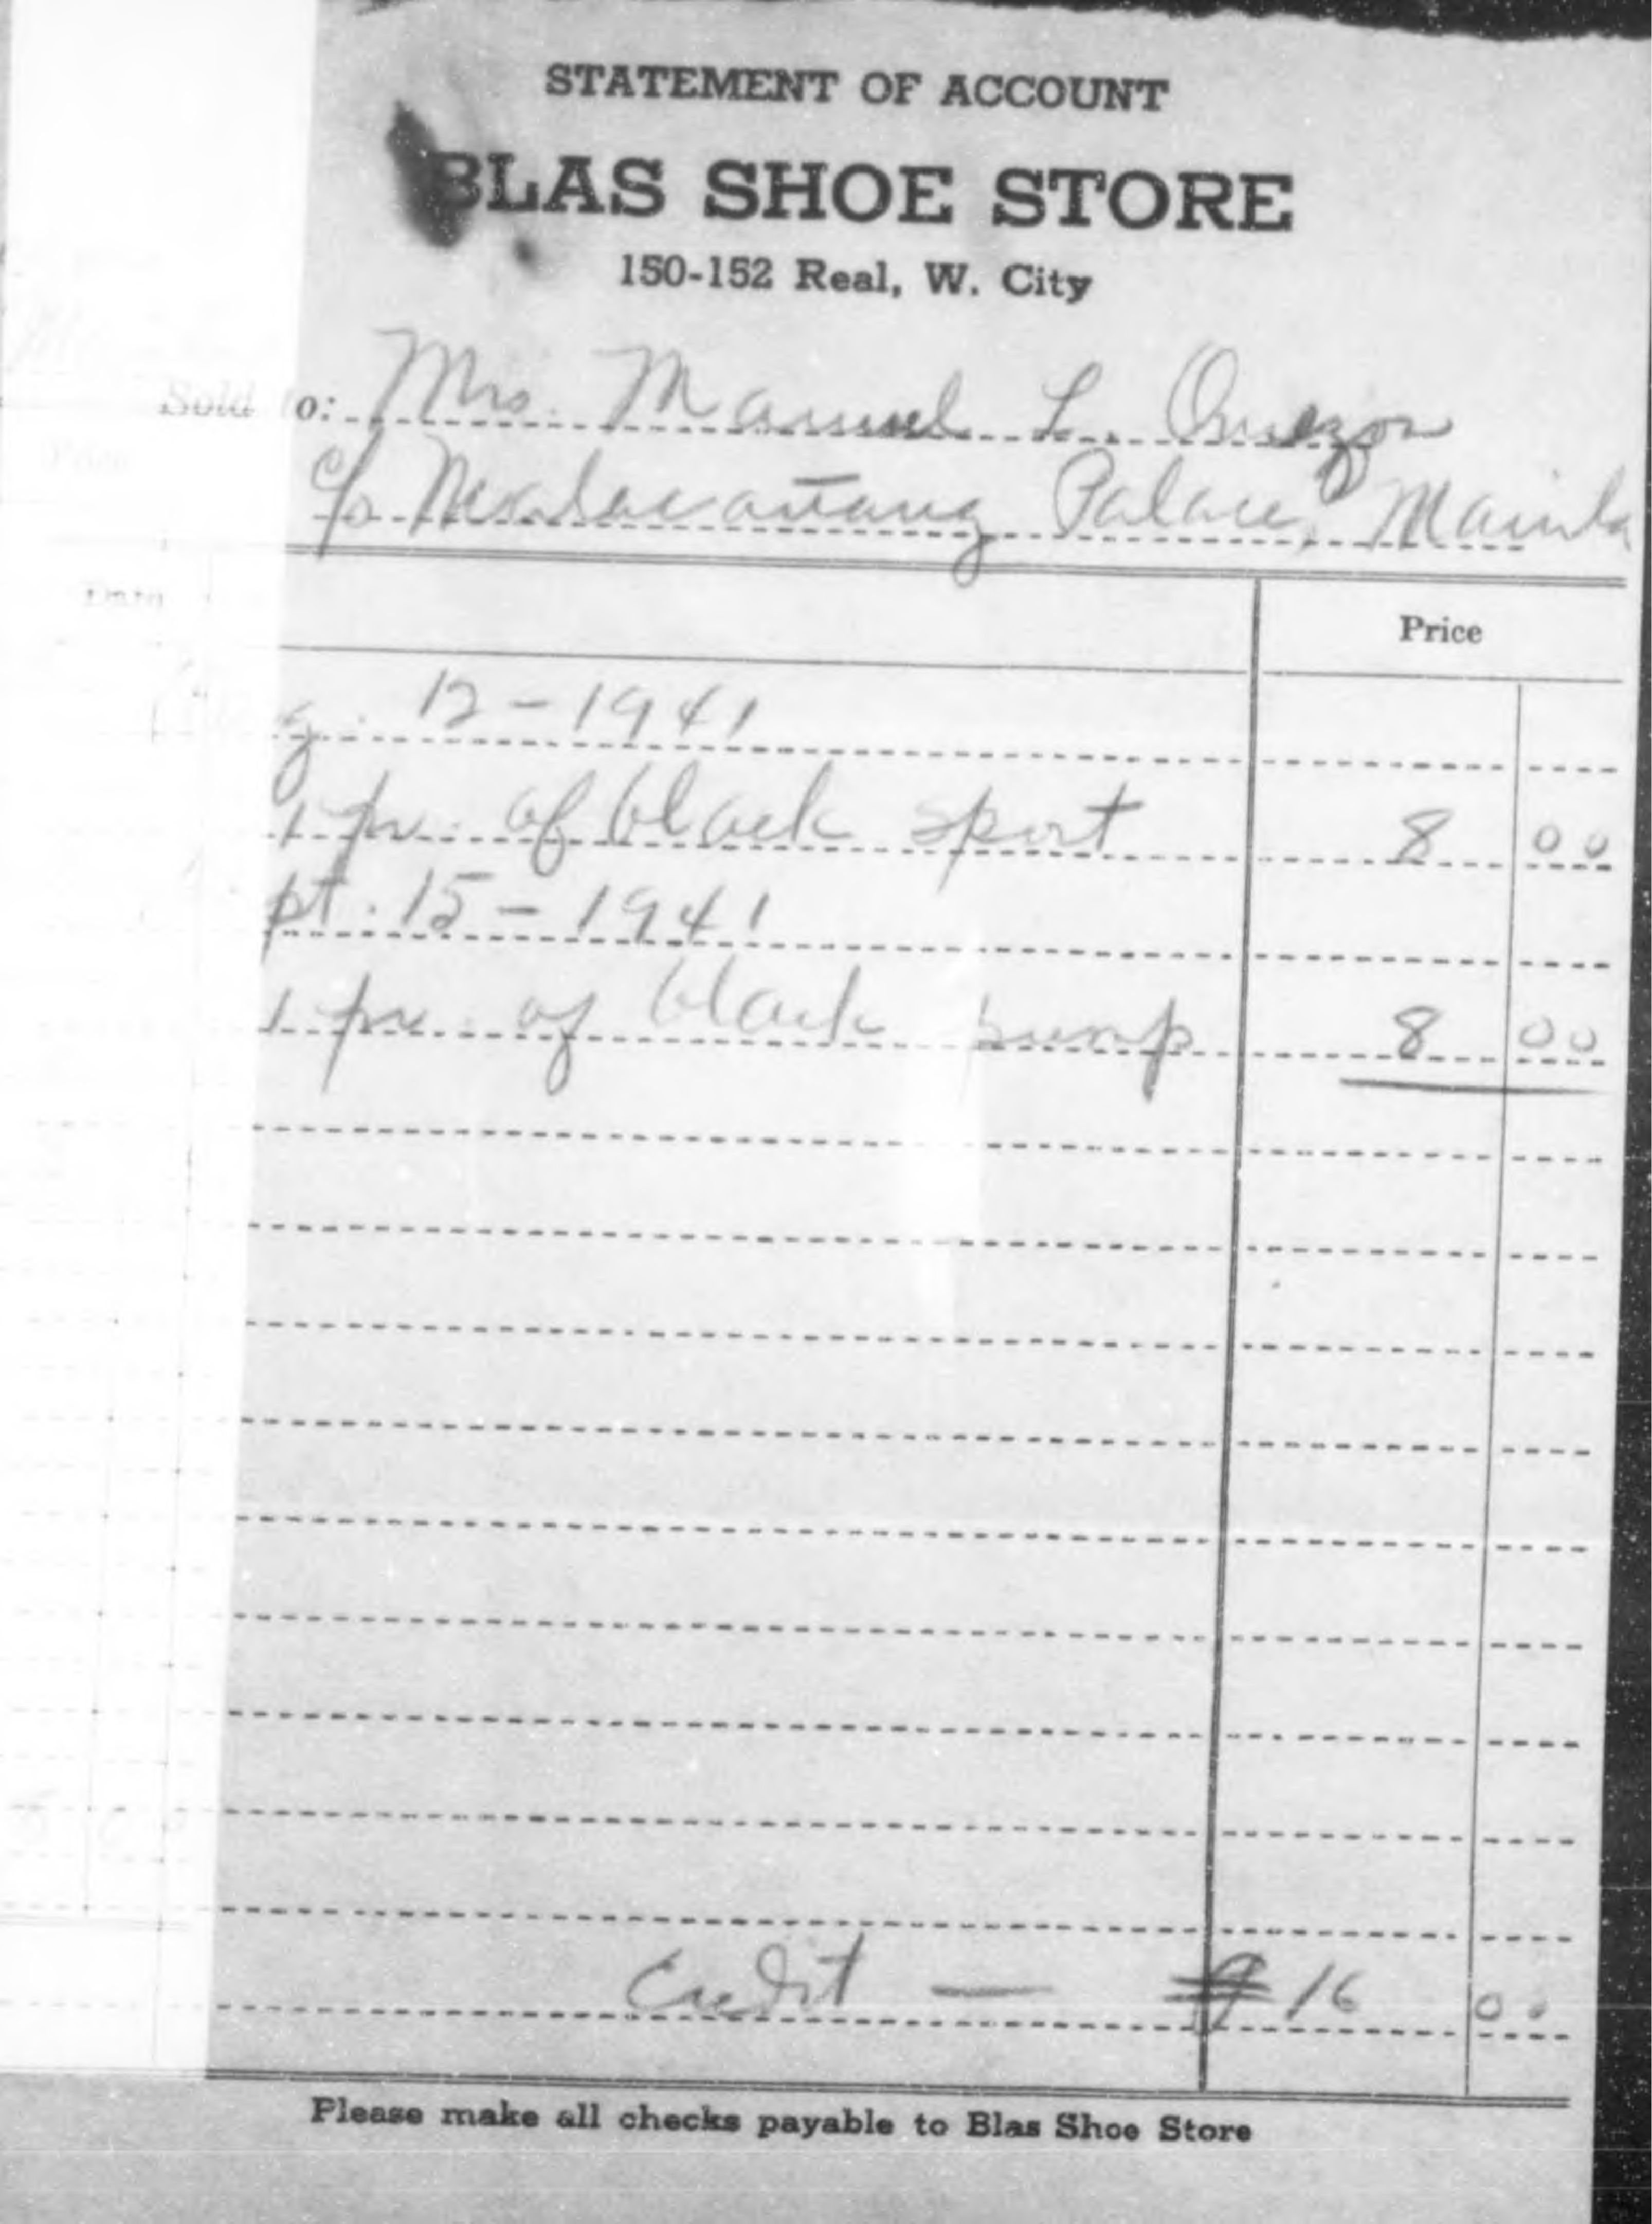 STATEMENT OF ACCOUNT
BLAS SHOE STORE
150-152 Real, W. City
Sold to: Mrs. Manuel L. Quezon
c/o Malacañang Palace, Manila
Price
g. 12-1941
1 pr. of black sport 8 00
pt. 15-1941
1 pr. of black pump 8 00
Credit — ₱ 16 00
Please make all checks payable to Blas Shoe Store